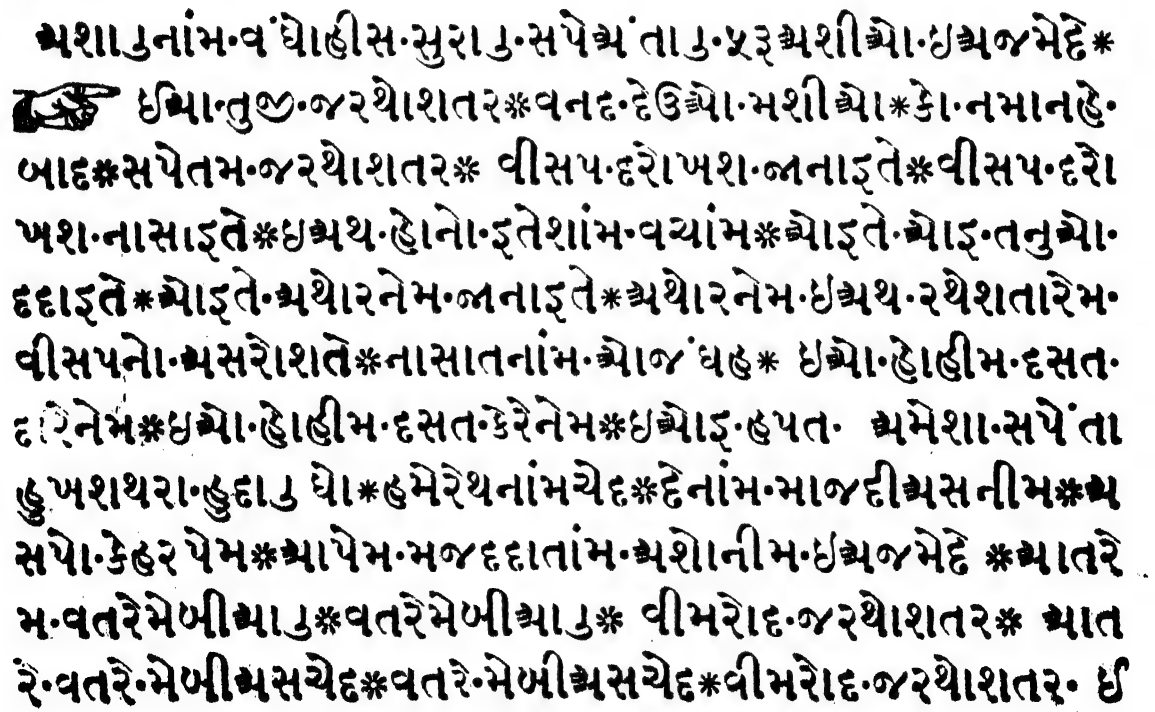 અશાુનાંમ·વંઘોહીસ·સુરાુ·સપેઅંતાુ·પરૂઅશીઓ·ઇઅજમેદે*
☞ ઈઆ·તુજી·જરથોશતર*વનદ·દેઉઓ·મશીઓ*કો·નમાનહે·
બાદ*સપેતમ·જરથોશતર* વીસપ·દરોખશ·જાનાઇતે*વીસપ·દરો
ખશ·નાસાઇતે*ઇઅથ·હોનો·ઇતેશાંમ·વચાંમ*ઓઇતે·ઓઇ·તનુઓ·
દદાઇતે*ઓઇતે·અથોરનેમ·જાનાઇતે*અથોરનેમ·ઇઅથ·રથેશતારેમ·
વીસપનો·અસરોશતે*નાસાતનાંમ·ઓજંઘહ* ઇઓ·હોહીમ·દસત·
દારેનેમ*ઇઓ·હોહીમ·દસત·કેરેનેમ*ઇઓઇ·હપત· અમેશા·સપેંતા
હુખશથરા·હુદાુ ઘો*હમેરેથનાંમચેદ*દેનાંમ·માજદીઅસનીમ*અ
સપો·કેહરપેમ*આપેમ·મજદદાતાંમ·અશોનીમ·ઇઅજમેદે *આતરે
મ·વતરેમેબીઆુ*વતરેમેબીઆુ* વીમરોદ·જરથોશતર* આત
રે·વતરે·મેબીઅસચેદ*વતરે·મેબીઅસચેદ*વીમરોદ·જરથોશતર· ઈ